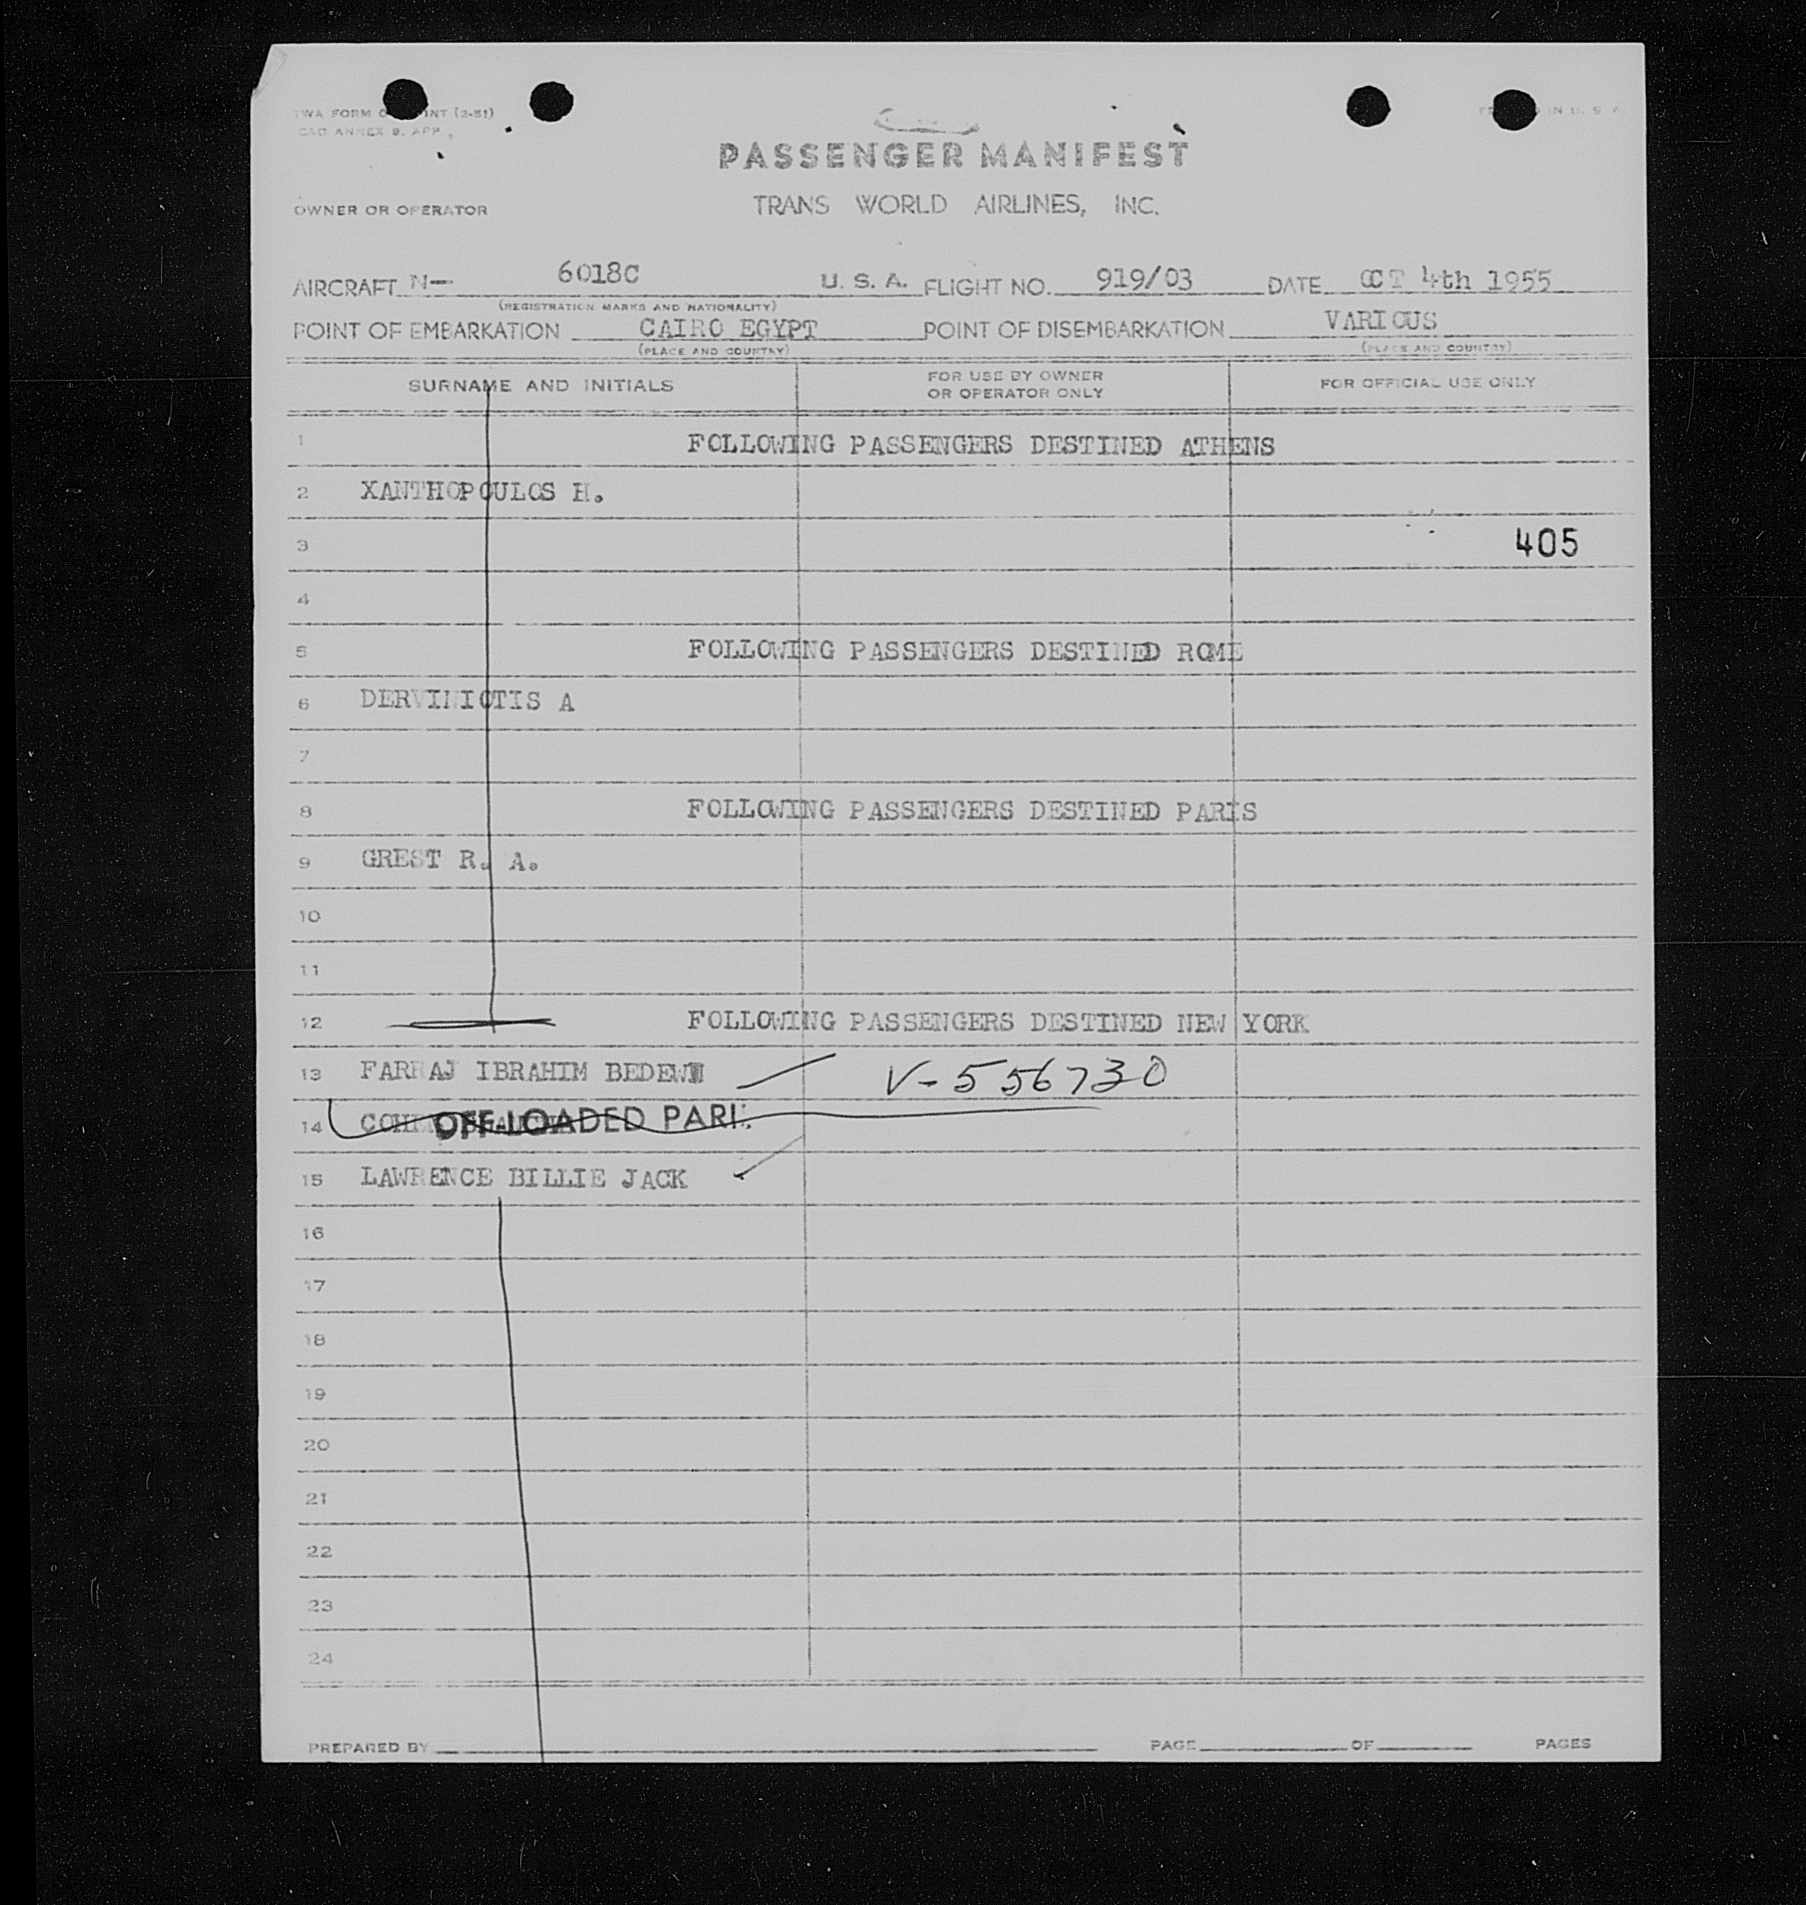 TWA FORM INT (2-51)
ANNEX 9, APP
IN U. S. A.
PASSENGER MANIFEST
OWNER OR OPERATOR TRANS WORLD AIRLINES, INC.
AIRCRAFT N- 6018C U. S. A. FLIGHT NO. 919/03 DATE OCT 4th 1955
(REGISTRATION MARKS AND NATIONALITY)
POINT OF EMBARKATION CAIRO EGYPT POINT OF DISEMBARKATION VARIOUS
(PLACE AND COUNTRY) (PLACE AND COUNTRY)
SURNAME AND INITIALS FOR USE BY OWNER OR OPERATOR ONLY FOR OFFICIAL USE ONLY
1 FOLLOWING PASSENGERS DESTINED ATHENS
2 XANTHOPOULOS H.
3 405
4
5 FOLLOWING PASSENGERS DESTINED ROME
6 DERVINIOTIS A
7
8 FOLLOWING PASSENGERS DESTINED PARIS
9 GREST R. A.
10
11
12 FOLLOWING PASSENGERS DESTINED NEW YORK
13 FARRAJ IBRAHIM BEDEWI V-556730
14 OFF-LOADED PARIS
15 LAWRENCE BILLIE JACK
16
17
18
19
20
21
22
23
24
PREPARED BY PAGE OF PAGES